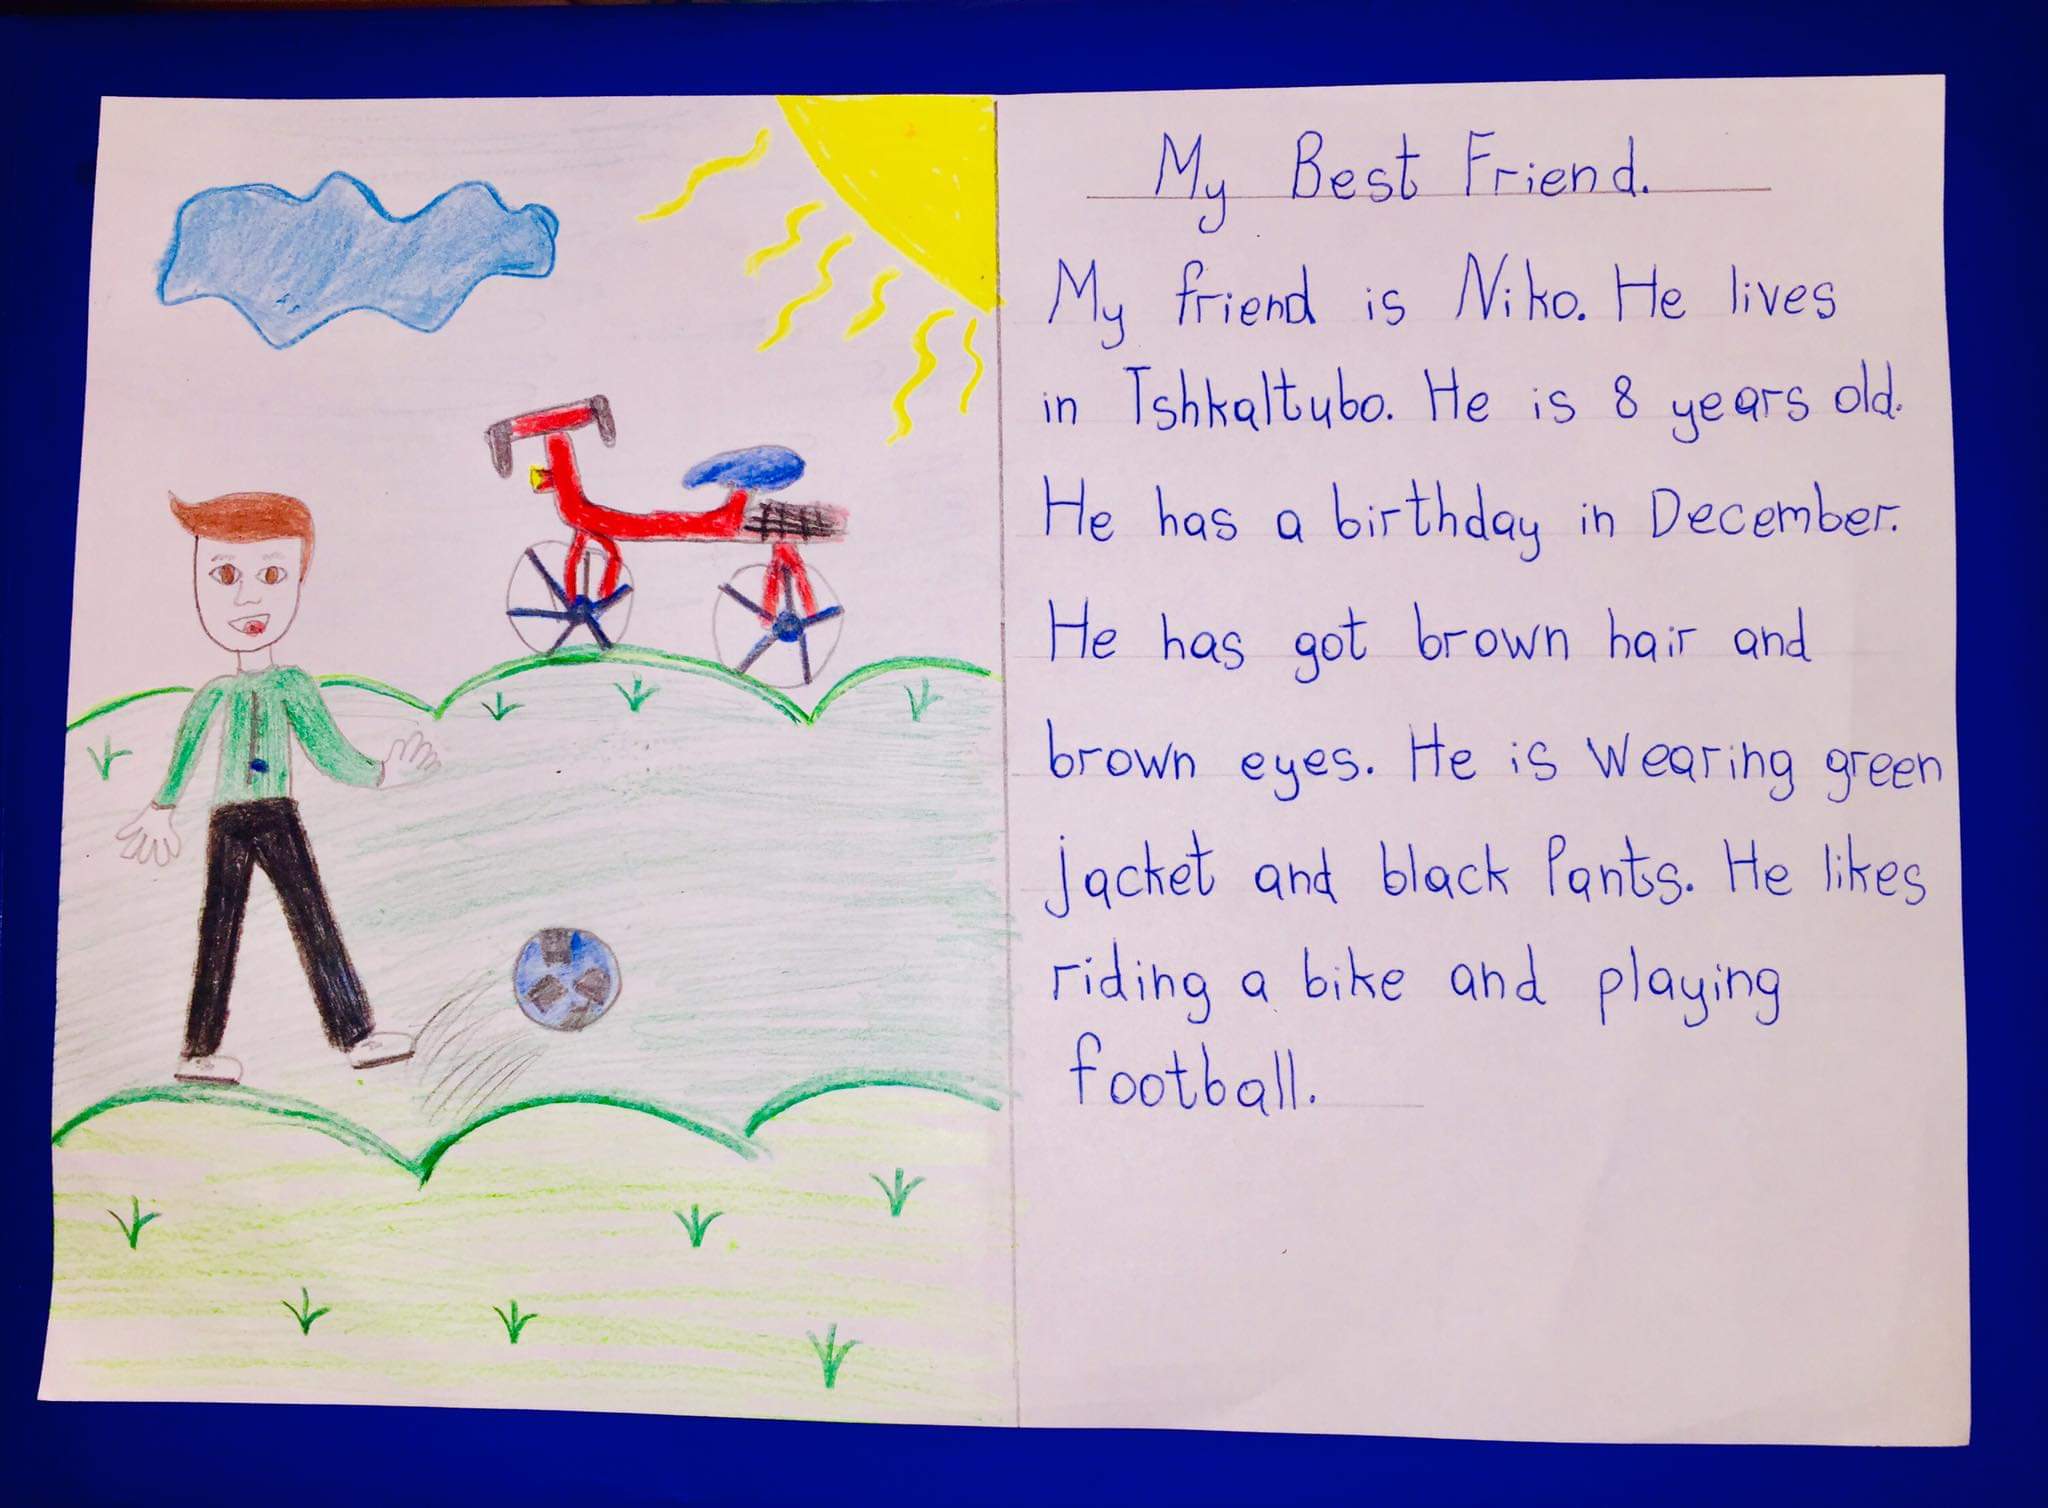 My Best Friend.
My friend is Niko. He lives
in Tshkaltubo. He is 8 years old.
He has a birthday in December.
He has got brown hair and
brown eyes. He is wearing green
jacket and black Pants. He likes
riding a bike and playing
football.